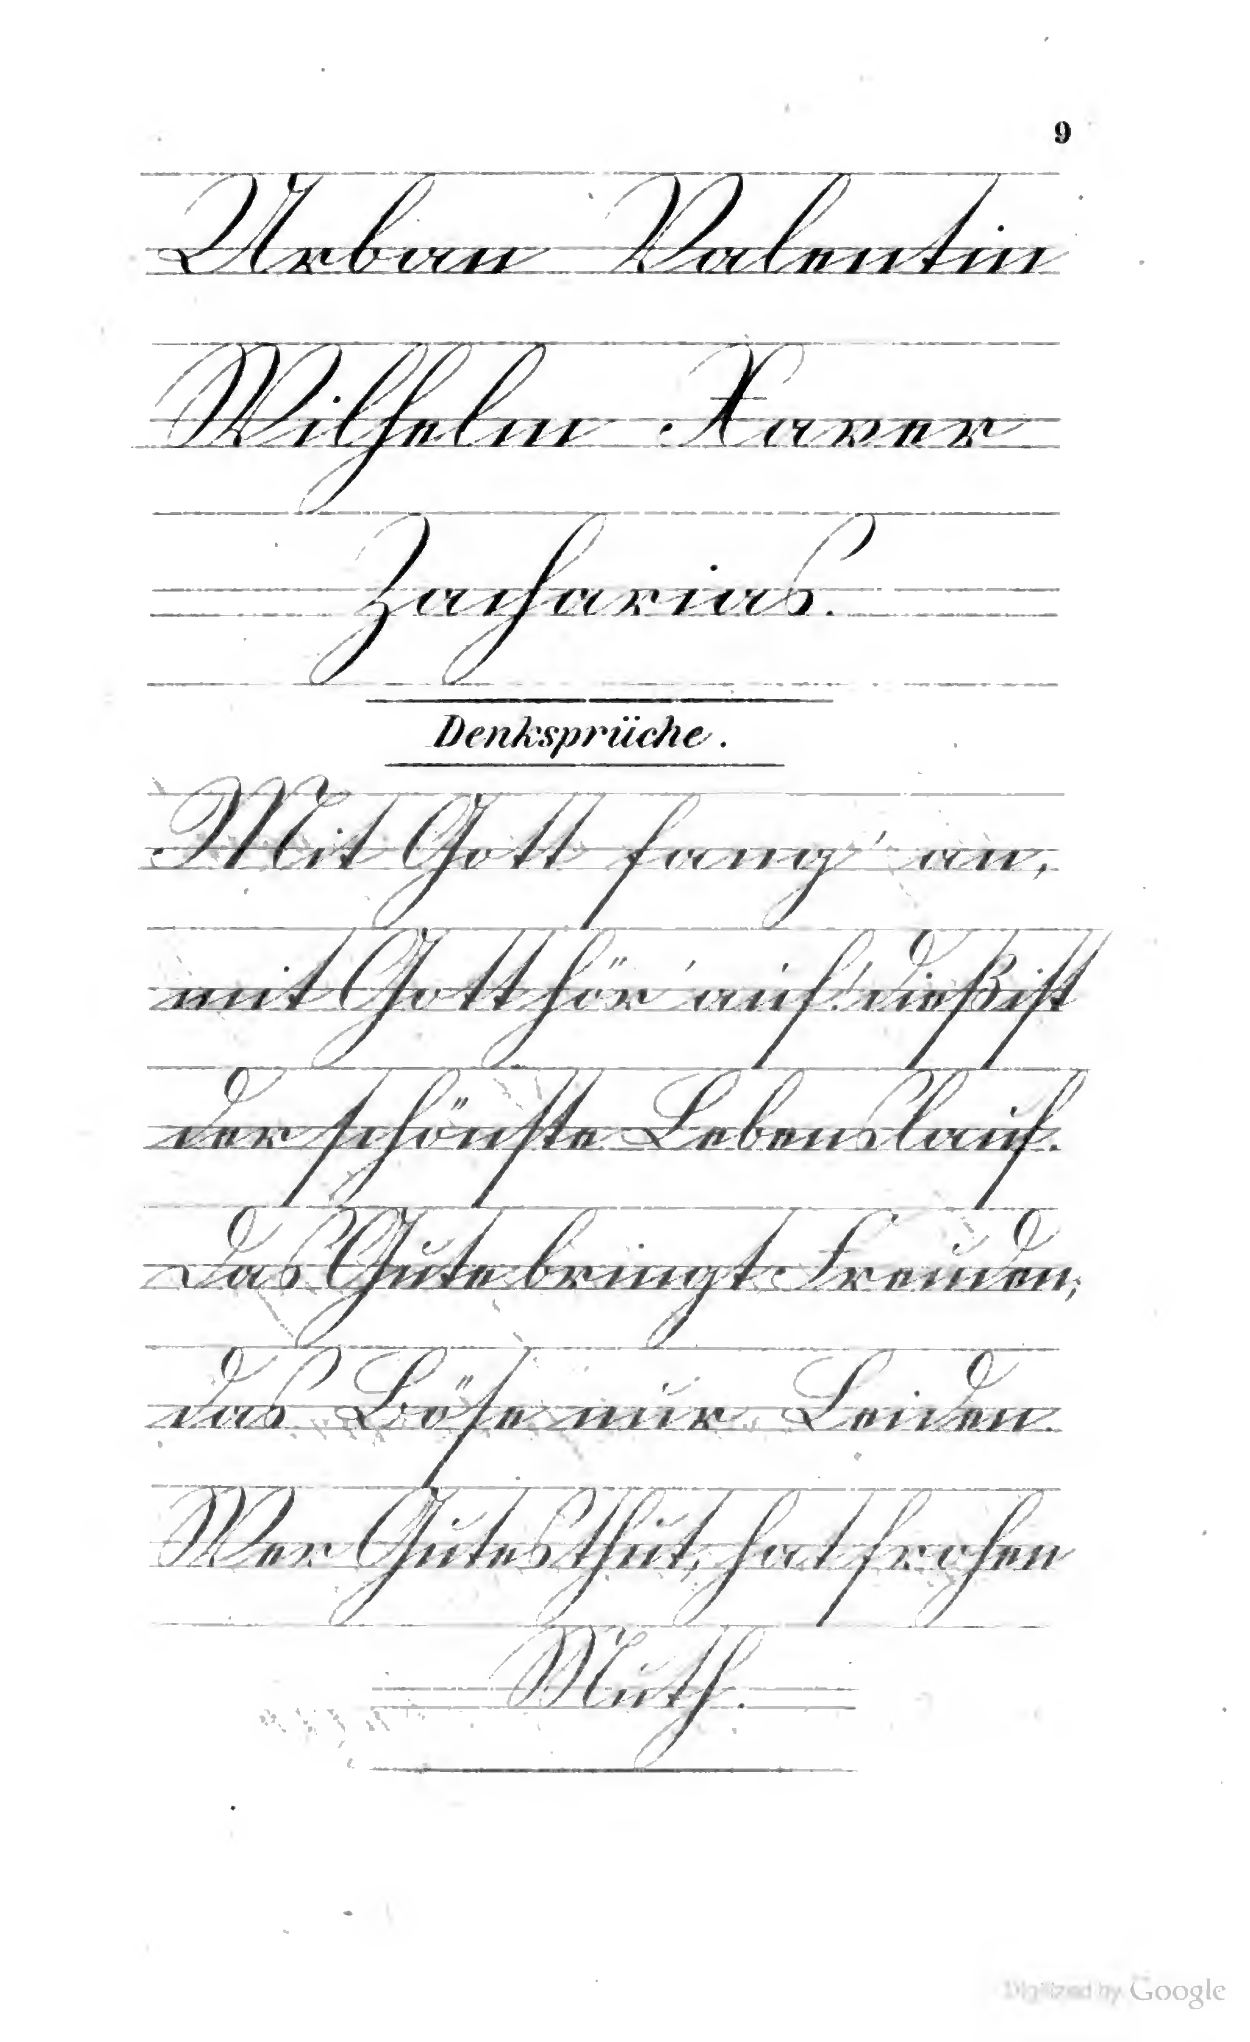 9
Urban Valentin
Wilhelm Xaver
Zacharias.
Denksprüche.
Mit Gott fang' an,
mit Gott hör' auf! dieß ist
der schönste Lebenslauf.
Das Gute bringt Freuden,
das Böse nur Leiden.
Wer Gutes thut, hat frohen
Muth.
Digitized by Google